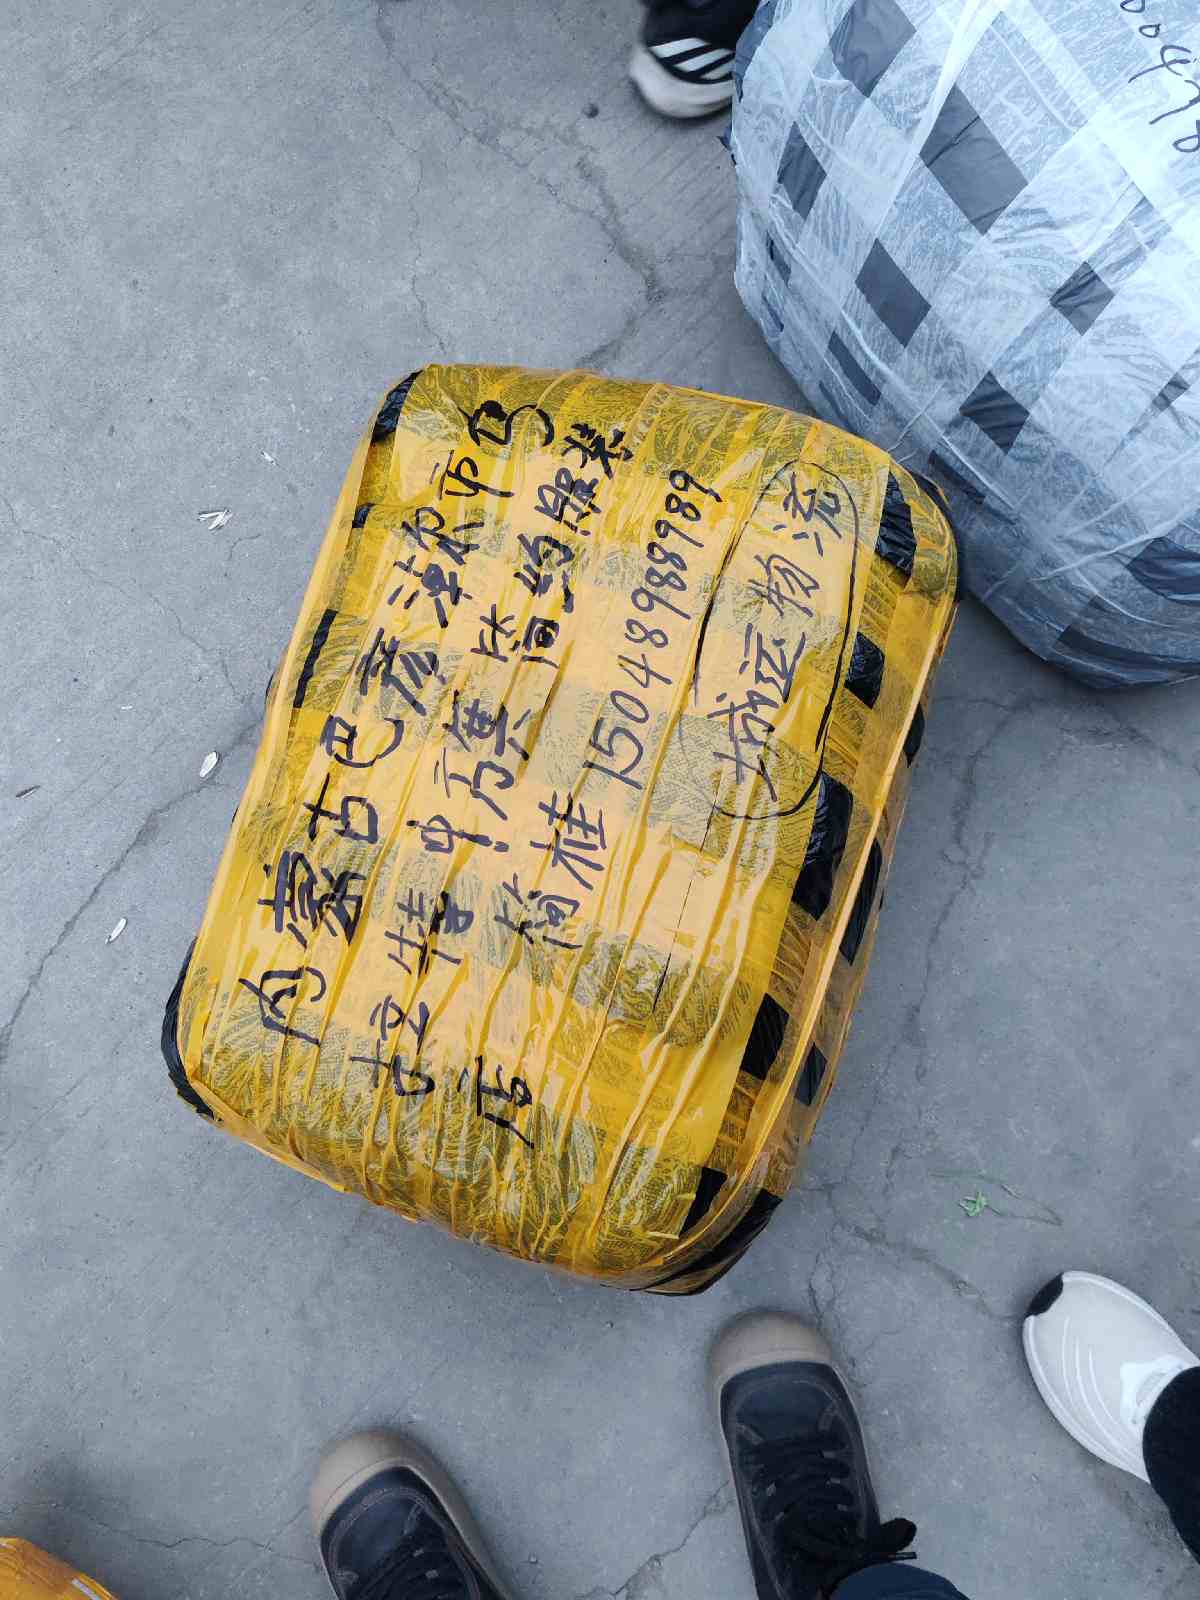 内蒙古巴彦淖尔市乌
拉特中旗简妈服装
店 简桂 15048988989
城运物流